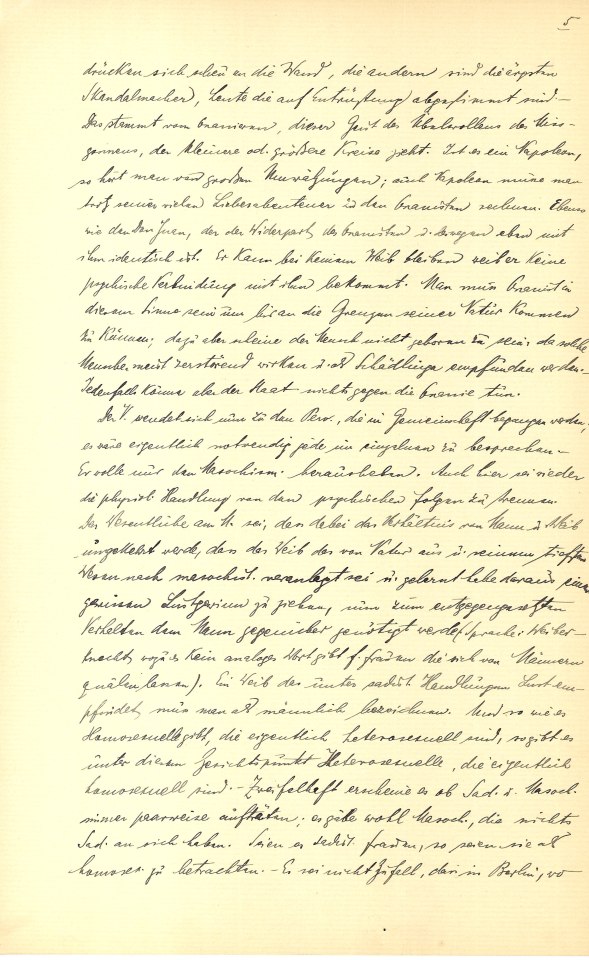 5
drücken sich scheu an die Wand, die andern sind die ärgsten
Skandalmacher), Leute die auf Entrüstung abgestimmt sind. –
Das stammt vom Onanieren, dieser Geist des Übelwollens des Miss-
gönnens, der kleinere od. größere Kreise zieht. Ist es ein Napoleon,
so hört man von großen Umwälzungen; auch Napoleon müsse man
trotz seiner vielen Liebesabenteuer zu den Onanisten rechnen. Ebenso
wie den Don Juan, der der Widerpart des Onanisten u. deswegen eben mit
ihm identisch ist. Er kann bei keinem Weib bleiben weil er keine
psychische Verbindung mit ihm bekommt. Man muss Onanist in
diesem Sinne sein um bis an die Grenzen seiner Natur kommen
zu können; dazu aber scheine der Mensch nicht geboren zu sein: da solche
Menschen meist zerstörend wirken u. als Schädlinge empfunden werden. –
Jedenfalls könne aber der Staat nichts gegen die Onanie tun.
Der V. wendet sich nun zu den Perv., die in Gemeinschaft begangen werden,
es wäre eigentlich notwendig jede im einzelnen zu besprechen –
Er wolle nur den Masochism. herausheben. Auch hier sei wieder
die physiol. Handlung von den psychischen Folgen zu trennen.
Das Wesentliche am M. sei, dass dabei das Verhältnis von Mann u. Weib
umgekehrt werde, dass das Weib das von Natur aus u. seinem tiefsten
Wesen nach masochist. veranlagt sei u. gelernt habe daraus einen
gewissen Lustgewinn zu ziehen, nun zum entgegengesetzten
Verhalten dem Mann gegenüber genötigt werde (Sprache: Weiber-
knecht, wozu es kein analoges Wort gibt f. Frauen die sich von Männern
quälen lassen). Ein Weib das unter sadist. Handlungen Lust em-
pfindet, muss man als männlich bezeichnen. Und so wie es
Homosexuelle gibt, die eigentlich heterosexuell sind, so gibt es
unter diesem Gesichtspunkt Heterosexuelle, die eigentlich
homosexuell sind. – Zweifelhaft erscheine es ob Sad. u. Masoch.
immer paarweise aufträten; es gäbe wohl Masoch., die nichts
Sad. an sich haben. Seien es sadist. Frauen, so seien sie als
homosex. zu betrachten. – Es sei nicht Zufall, dass in Berlin, wo